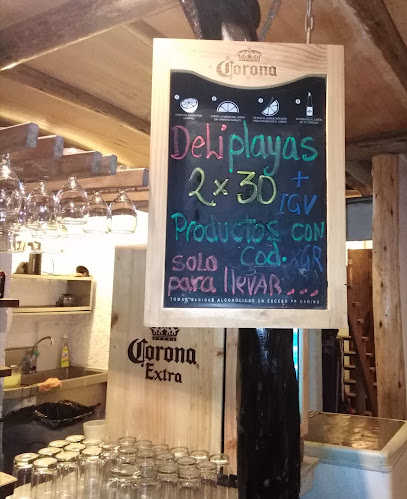 Corona
Deliplayas
2x30 + IGV
Productos con
Cod. XGR
solo
para llevar...
TOMAR BEBIDAS ALCOHÓLICAS EN EXCESO ES DAÑINO
Corona
Extra